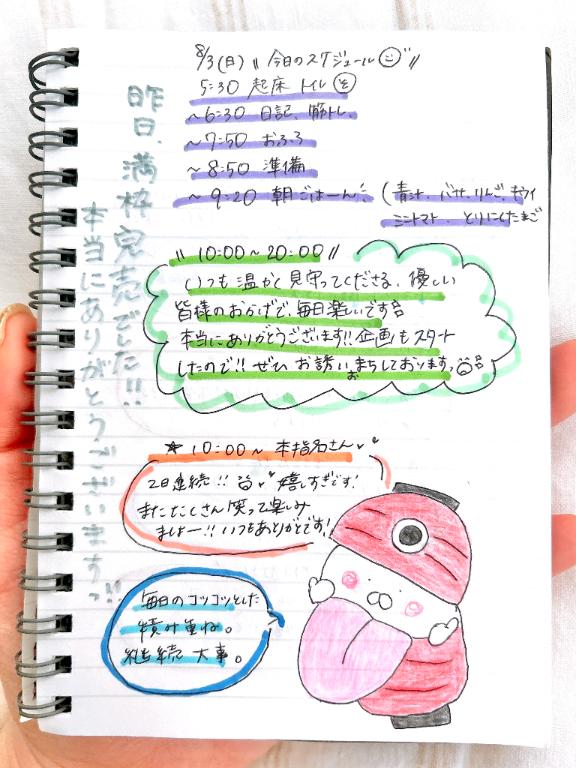 8/3(日) 〝今日のスケジュール〟
5:30 起床 トイレ
~6:30 日記、筋トレ、
~7:50 おふろ
~8:50 準備
~9:20 朝ごはーん (青汁、バナナ、りんご、キウイ
ミニトマト、とりにくたまご
昨日、満枠完売でした!!
本当にありがとうございます!!
〝10:00~20:00〟
いつも温かく見守ってくださる、優しい
皆様のおかげで、毎日楽しいです
本当にありがとうございます!!企画もスタート
したので!!ぜひ お誘いおまちしております。
★10:00~ 本指名さん
2日連続!! 嬉しすぎです!
またたくさん笑って楽しみ
ましょー!!いつもありがとです!
毎日のコツコツとした
積み重ね。
継続大事。